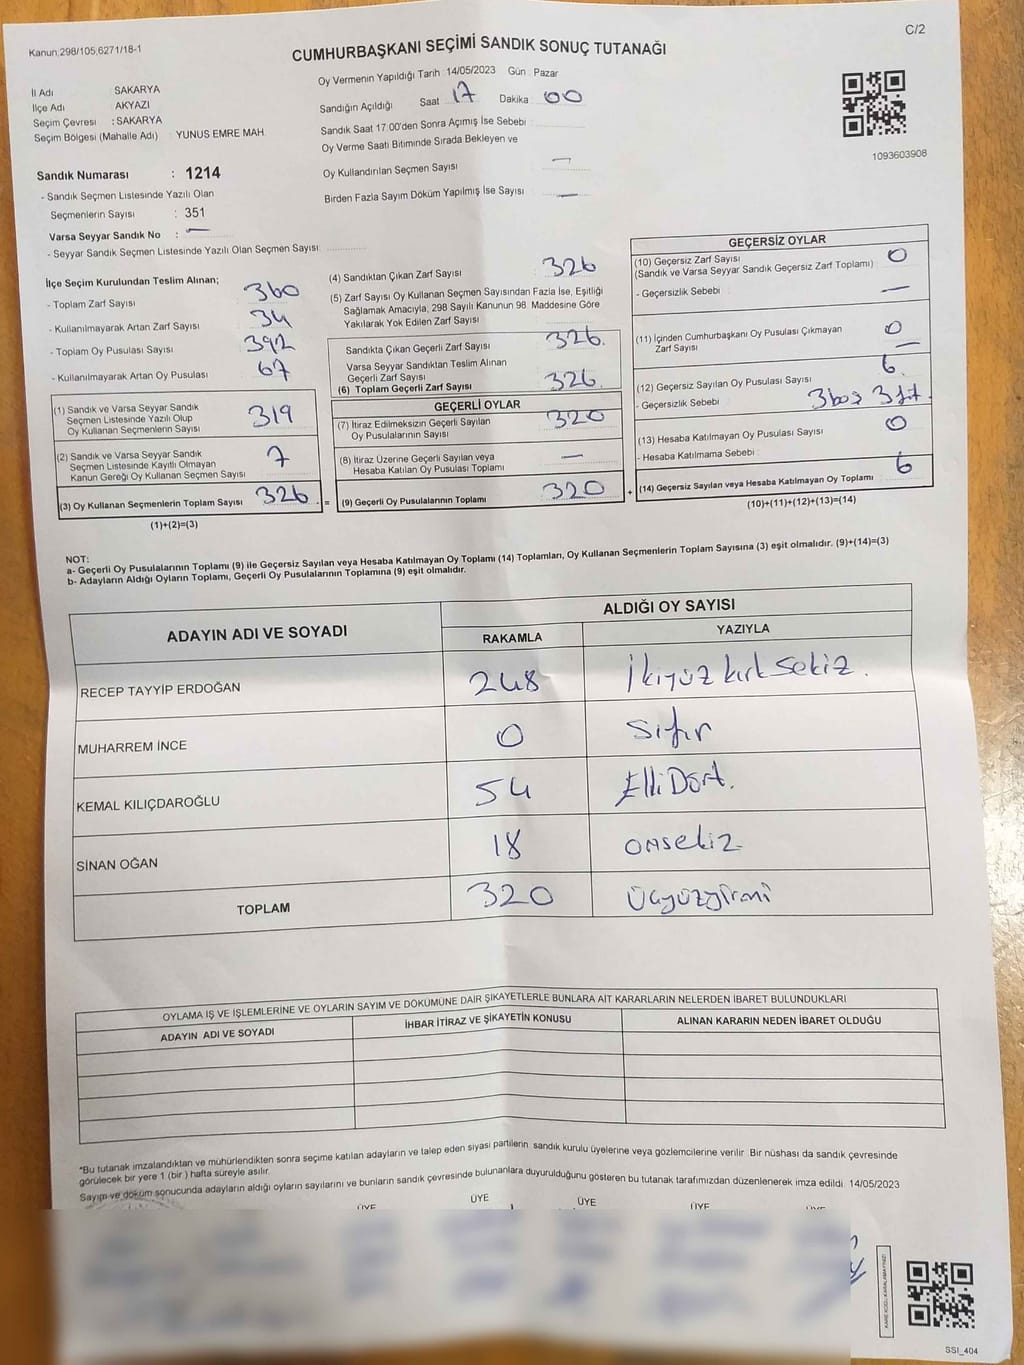 Kanun,298/105,6271/18-1
C/2
CUMHURBAŞKANI SEÇİMİ SANDIK SONUÇ TUTANAĞI
Oy Vermenin Yapıldığı Tarih : 14/05/2023 Gün : Pazar
İl Adı SAKARYA
İlçe Adı AKYAZI
Seçim Çevresi : SAKARYA
Seçim Bölgesi (Mahalle Adı) YUNUS EMRE MAH.
Sandığın Açıldığı Saat 17 Dakika 00
Sandık Saat 17:00'den Sonra Açımış İse Sebebi :
Oy Verme Saati Bitiminde Sırada Bekleyen ve
Oy Kullandırılan Seçmen Sayısı —
Birden Fazla Sayım Döküm Yapılmış İse Sayısı —
1093603908
Sandık Numarası : 1214
- Sandık Seçmen Listesinde Yazılı Olan
Seçmenlerin Sayısı : 351
Varsa Seyyar Sandık No : —
- Seyyar Sandık Seçmen Listesinde Yazılı Olan Seçmen Sayısı:
İlçe Seçim Kurulundan Teslim Alınan;
- Toplam Zarf Sayısı 360
- Kullanılmayarak Artan Zarf Sayısı 34
- Toplam Oy Pusulası Sayısı 392
- Kullanılmayarak Artan Oy Pusulası 67
(1) Sandık ve Varsa Seyyar Sandık
Seçmen Listesinde Yazılı Olup
Oy Kullanan Seçmenlerin Sayısı 319
(2) Sandık ve Varsa Seyyar Sandık
Seçmen Listesinde Kayıtlı Olmayan
Kanun Gereği Oy Kullanan Seçmen Sayısı 7
(3) Oy Kullanan Seçmenlerin Toplam Sayısı 326 =
(1)+(2)=(3)
(4) Sandıktan Çıkan Zarf Sayısı 326
(5) Zarf Sayısı Oy Kullanan Seçmen Sayısından Fazla İse, Eşitliği
Sağlamak Amacıyla, 298 Sayılı Kanunun 98. Maddesine Göre
Yakılarak Yok Edilen Zarf Sayısı
Sandıkta Çıkan Geçerli Zarf Sayısı 326.
Varsa Seyyar Sandıktan Teslim Alınan
Geçerli Zarf Sayısı
(6) Toplam Geçerli Zarf Sayısı 326.
GEÇERLİ OYLAR
(7) İtiraz Edilmeksizin Geçerli Sayılan
Oy Pusulalarının Sayısı 320
(8) İtiraz Üzerine Geçerli Sayılan veya
Hesaba Katılan Oy Pusulası Toplamı —
(9) Geçerli Oy Pusulalarının Toplamı 320 +
GEÇERSİZ OYLAR
(10) Geçersiz Zarf Sayısı 0
(Sandık ve Varsa Seyyar Sandık Geçersiz Zarf Toplamı)
- Geçersizlik Sebebi —
(11) İçinden Cumhurbaşkanı Oy Pusulası Çıkmayan
Zarf Sayısı 0 —
(12) Geçersiz Sayılan Oy Pusulası Sayısı 6.
- Geçersizlik Sebebi 3 boş 3
(13) Hesaba Katılmayan Oy Pusulası Sayısı 0
- Hesaba Katılmama Sebebi
(14) Geçersiz Sayılan veya Hesaba Katılmayan Oy Toplamı 6
(10)+(11)+(12)+(13)=(14)
NOT:
a- Geçerli Oy Pusulalarının Toplamı (9) ile Geçersiz Sayılan veya Hesaba Katılmayan Oy Toplamı (14) Toplamları, Oy Kullanan Seçmenlerin Toplam Sayısına (3) eşit olmalıdır. (9)+(14)=(3)
b- Adayların Aldığı Oyların Toplamı, Geçerli Oy Pusulalarının Toplamına (9) eşit olmalıdır.
ADAYIN ADI VE SOYADI ALDIĞI OY SAYISI
RAKAMLA YAZIYLA
RECEP TAYYİP ERDOĞAN 248 İkiyüz kırk sekiz.
MUHARREM İNCE 0 Sıfır
KEMAL KILIÇDAROĞLU 54 Elli Dört.
SİNAN OĞAN 18 onsekiz
TOPLAM 320 üçyüzyirmi
OYLAMA İŞ VE İŞLEMLERİNE VE OYLARIN SAYIM VE DÖKÜMÜNE DAİR ŞİKAYETLERLE BUNLARA AİT KARARLARIN NELERDEN İBARET BULUNDUKLARI
ADAYIN ADI VE SOYADI İHBAR İTİRAZ VE ŞİKAYETİN KONUSU ALINAN KARARIN NEDEN İBARET OLDUĞU
*Bu tutanak imzalandıktan ve mühürlendikten sonra seçime katılan adayların ve talep eden siyasi partilerin, sandık kurulu üyelerine veya gözlemcilerine verilir. Bir nüshası da sandık çevresinde
görülecek bir yere 1 (bir) hafta süreyle asılır.
Sayım ve döküm sonucunda adayların aldığı oyların sayılarını ve bunların sandık çevresinde bulunanlara duyurulduğunu gösteren bu tutanak tarafımızdan düzenlenerek imza edildi. 14/05/2023
ÜYE ÜYE ÜYE ÜYE
SSI_404